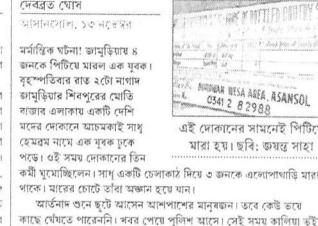 দেবব্রত ঘোষ
আসানসোল, ১৩ নভেম্বর
মর্মান্তিক ঘটনা! জামুড়িয়ায় ৪
জনকে পিটিয়ে মারল এক যুবক।
বৃহস্পতিবার রাত ২টো নাগাদ
জামুড়িয়ার শিবপুরের মোতি
বাজার এলাকায় একটি দেশি
মদের দোকানে আচমকাই সাধু
হেমব্রম নামে এক যুবক ঢুকে
পড়ে। ওই সময় দোকানের তিন
কর্মী ঘুমোচ্ছিলেন। সাধু একটি চেলাকাঠ দিয়ে ৩ জনকে এলোপাথাড়ি মারতে
থাকে। মারের চোটে তাঁরা অজ্ঞান হয়ে যান।
আর্তনাদ শুনে ছুটে আসেন আশপাশের মানুষজন। তবে কেউ ভয়ে
কাছে ঘেঁষতে পারেননি। খবর পেয়ে পুলিশ আসে। সেই সময় কালিয়া ভুঁই
OF BOTTLED COUNTRY
BURDWAN WESA AREA, ASANSOL
0341 2 82988
এই দোকানের সামনেই পিটিয়ে
মারা হয়। ছবি: জয়ন্ত সাহা